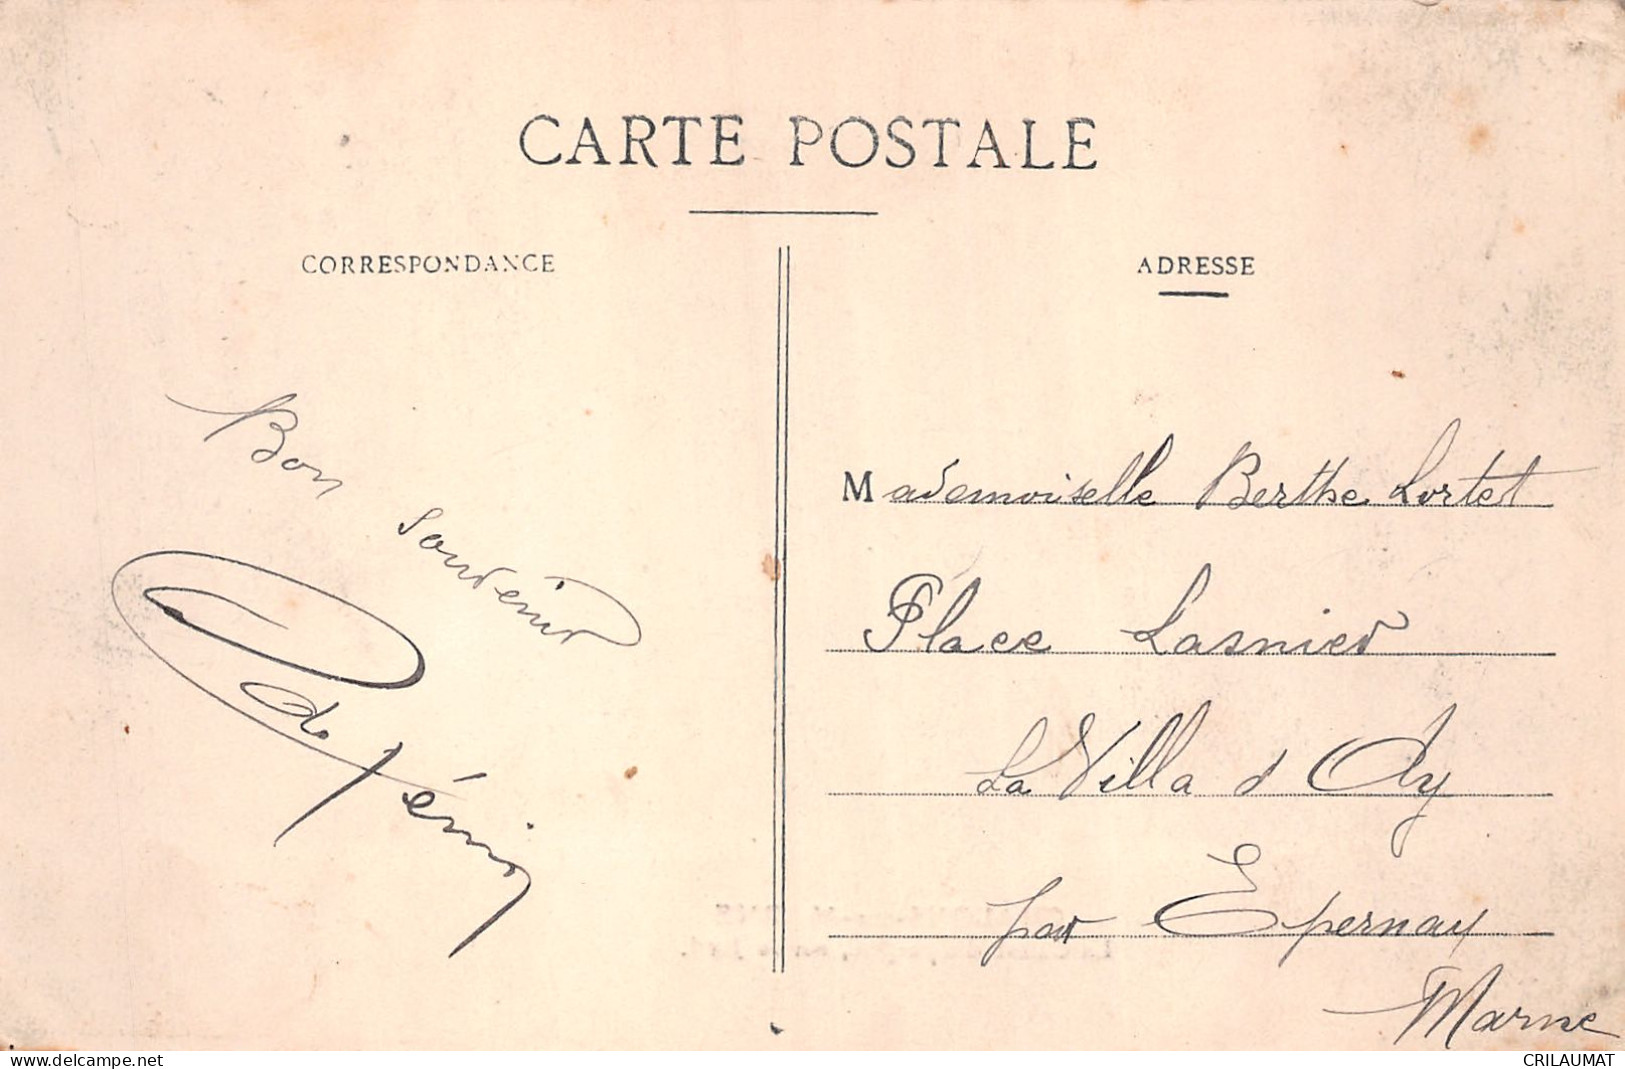 CARTE POSTALE
CORRESPONDANCE
ADRESSE
Bon
souvenir
Mademoiselle Berthe Lortet
Place Lasnier
La Villa d Ay
par Epernay
Marne
www.delcampe.net
CRILAUMAT